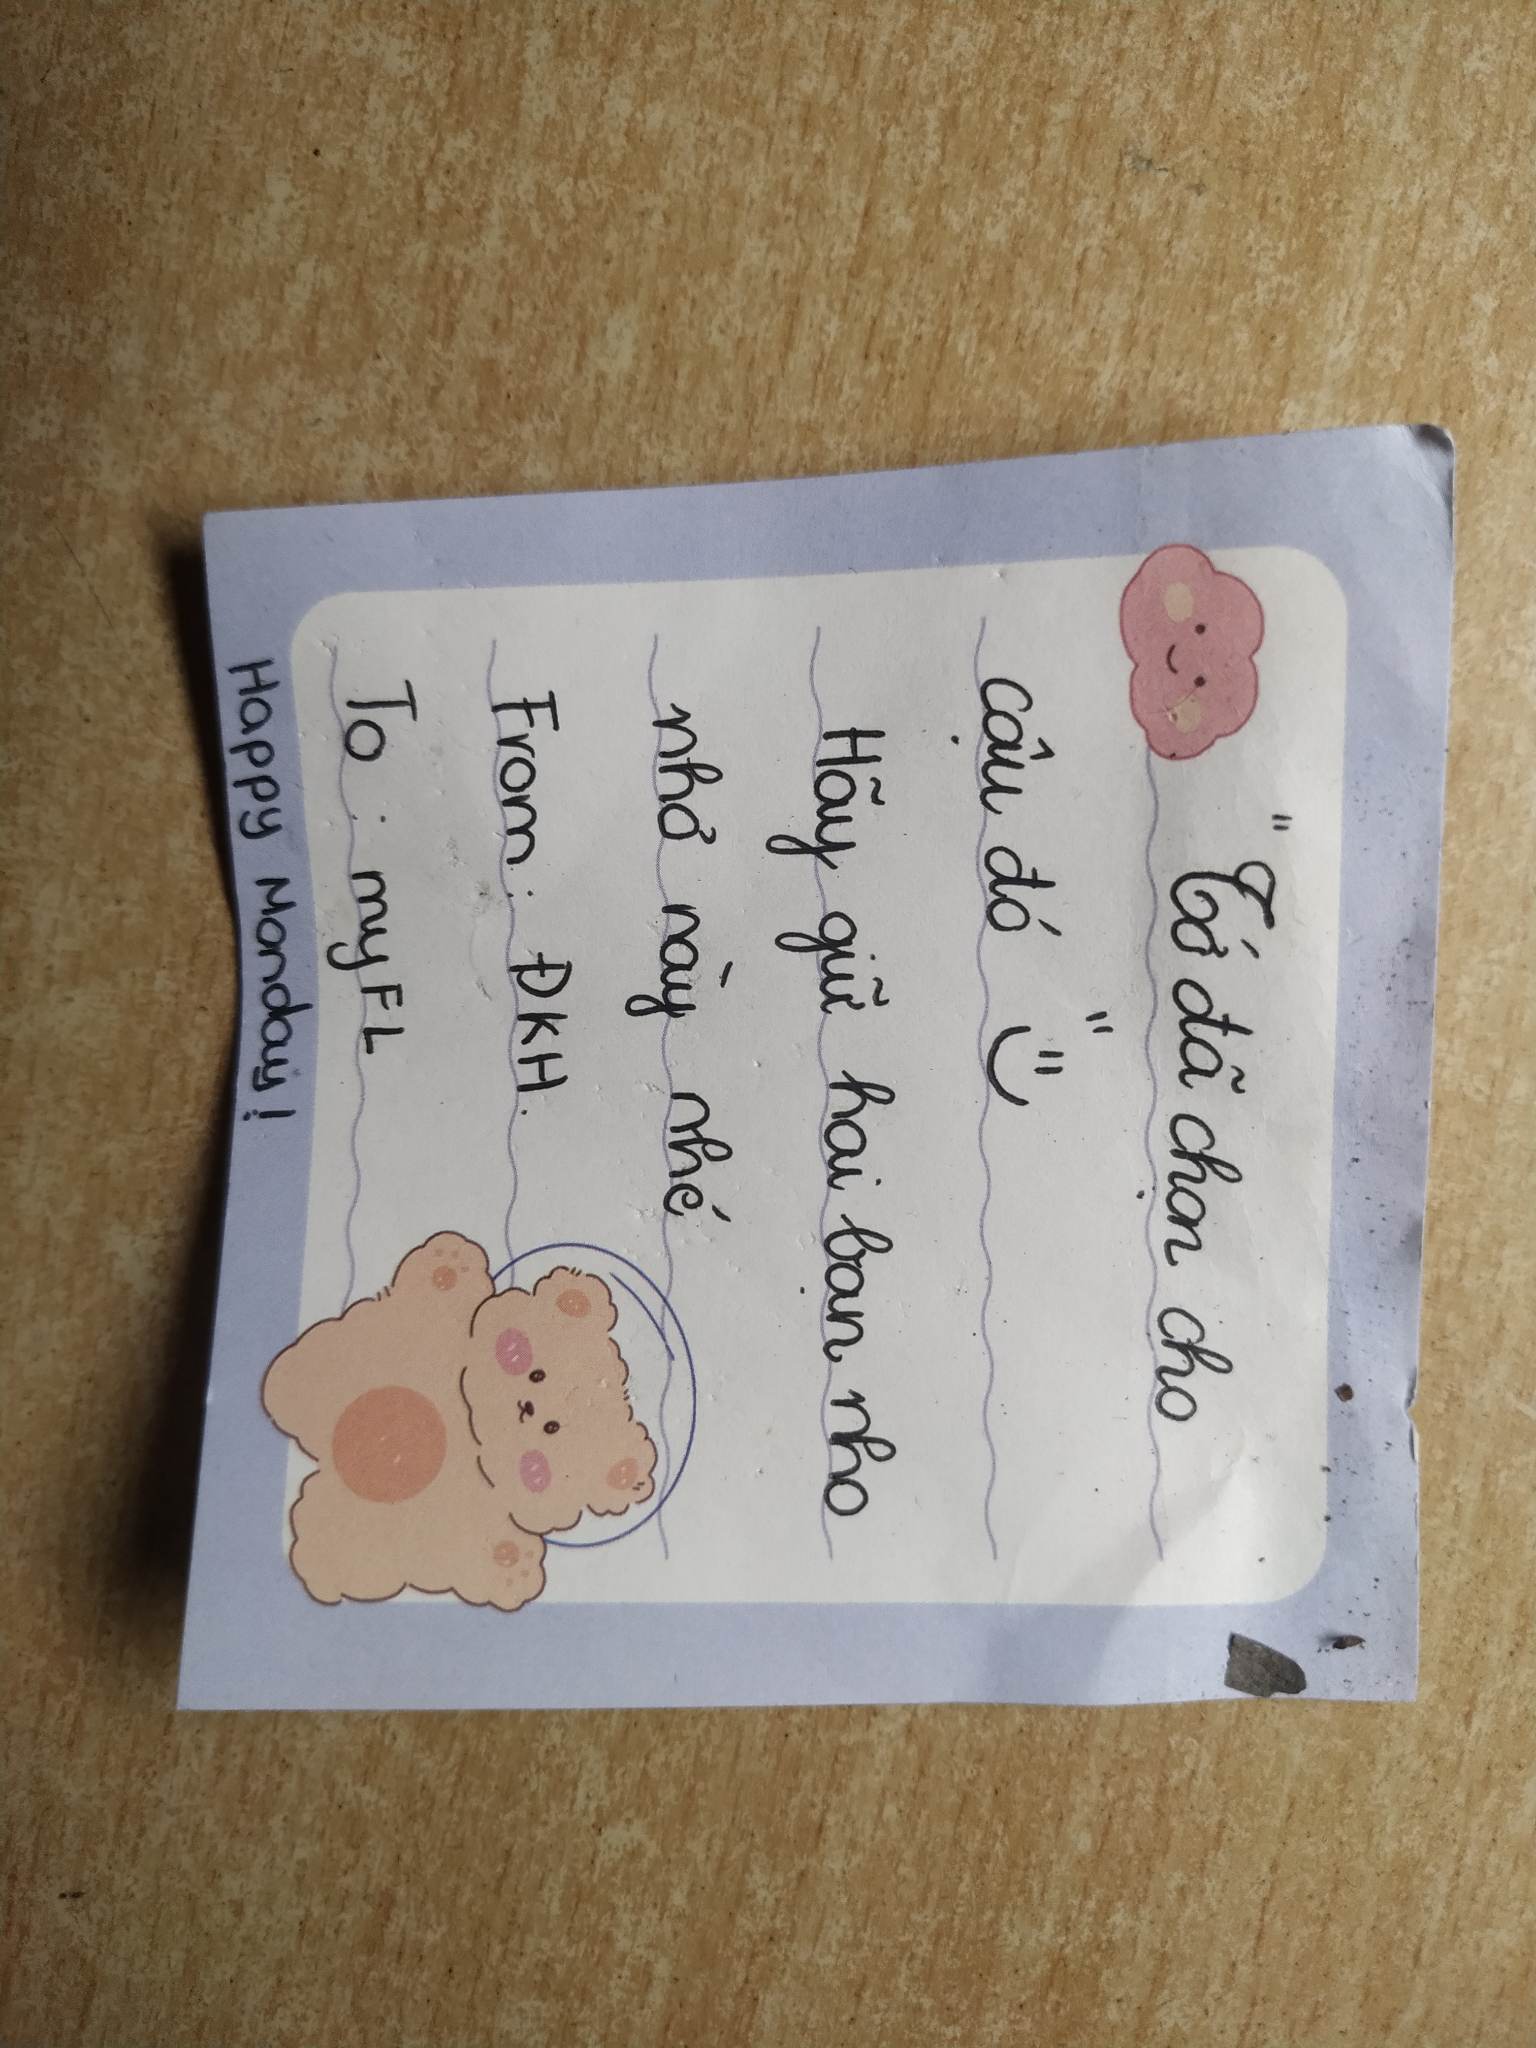 "Tớ đã chọn cho
cậu đó"
Hãy giữ hai bạn nho
nhỏ này nhé
From: ĐKH.
To: my FL
Happy Monday!